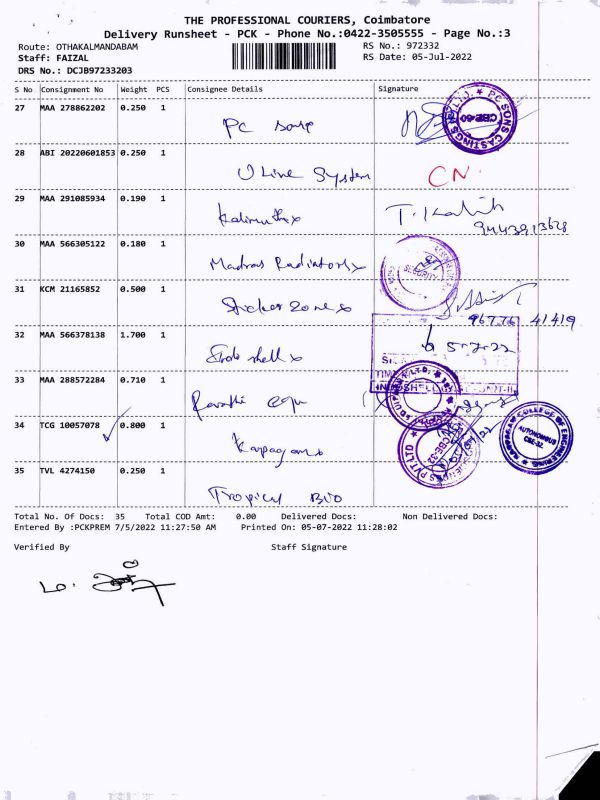 THE PROFESSIONAL COURIERS, Coimbatore
Delivery Runsheet - PCK - Phone No.:0422-3505555 - Page No.:3
Route: OTHAKALMANDABAM
RS No.: 972332
Staff: FAIZAL
RS Date: 05-Jul-2022
DRS No.: DCJB97233203
S No Consignment No Weight PCS Consignee Details Signature
27 MAA 278862202 0.250 1 PC sons
PC SONS CASTINGS CBE-50
28 ABI 20220601853 0.250 1 U Line System CN.
29 MAA 291085934 0.190 1
30 MAA 566305122 0.180 1 Madras Radiators
SECURITY
31 KCM 21165852 0.500 1 Sticker Zone
96776 41419
32 MAA 566378138 1.700 1 shell
5-7-22
33 MAA 288572284 0.710 1
34 TCG 10057078 0.800 1 Karpagam
COLLEGE OF ENGINEERING AUTONOMOUS CBE-32
35 TVL 4274150 0.250 1 Tropical Bio
PVT LTD CBE-32
Total No. Of Docs: 35 Total COD Amt: 0.00 Delivered Docs: Non Delivered Docs:
Entered By :PCKPREM 7/5/2022 11:27:50 AM Printed On: 05-07-2022 11:28:02
Verified By Staff Signature